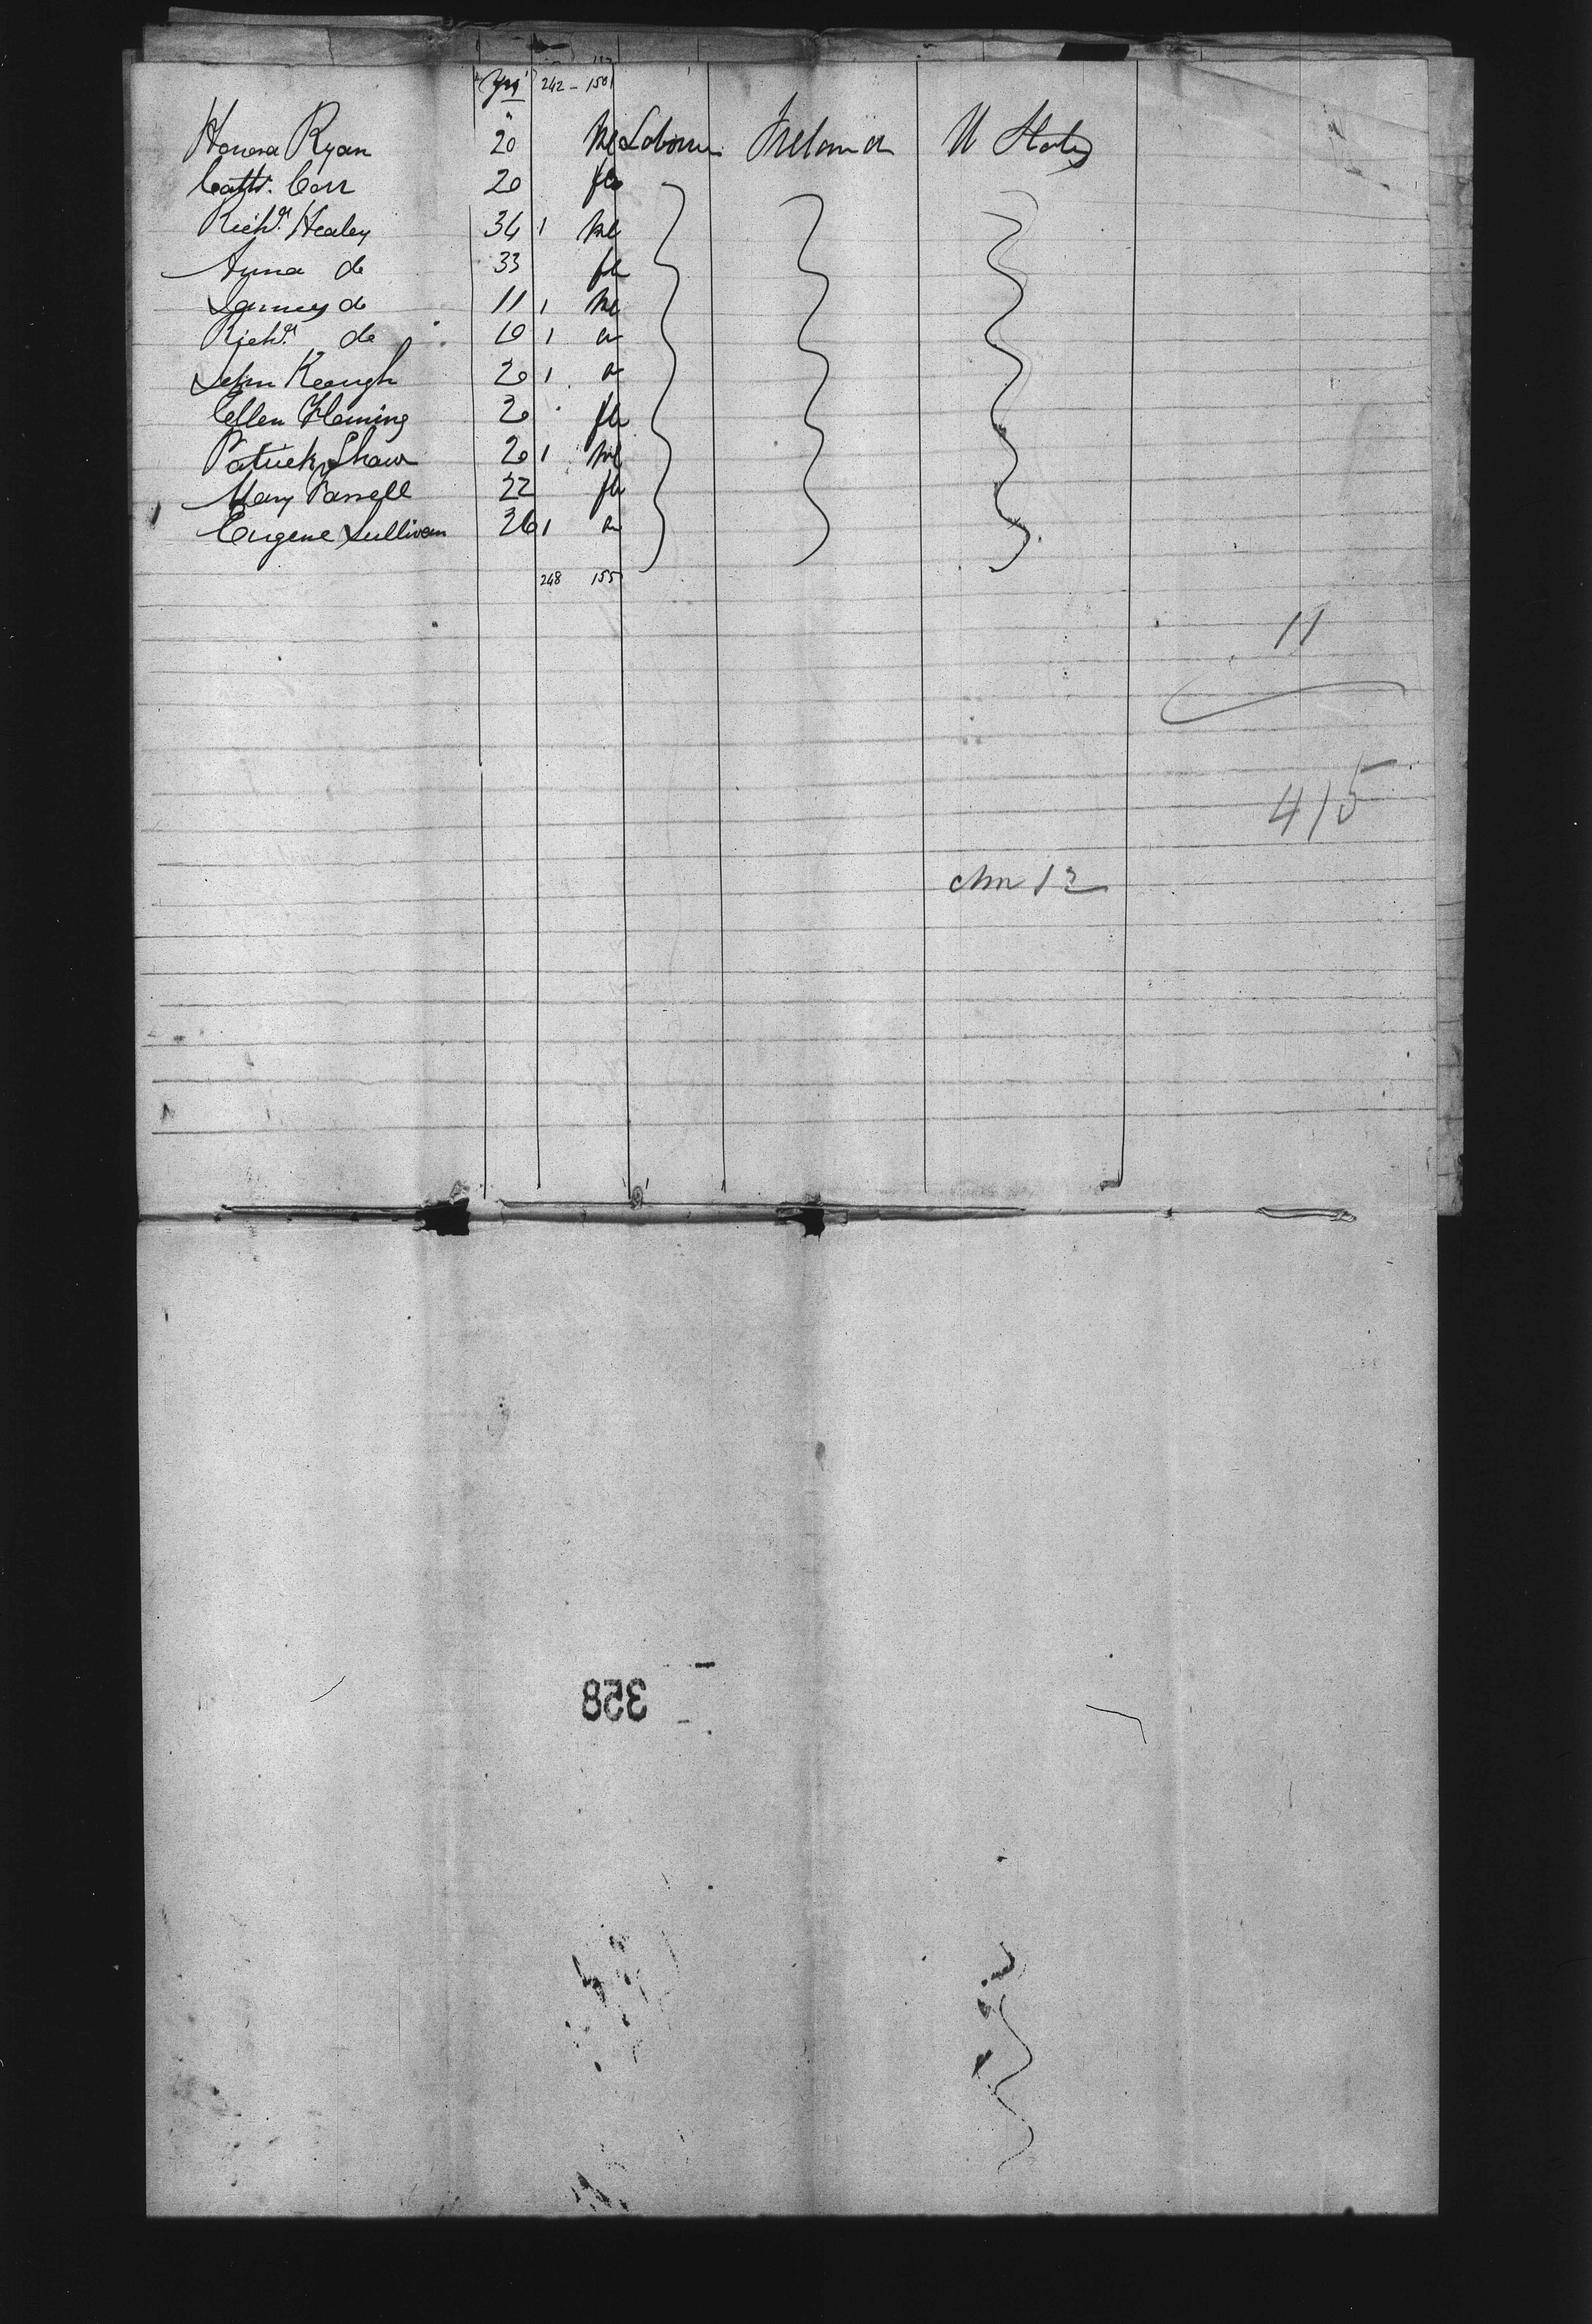 Yrs 242 - 150
Honora Ryan 20 Me Labourer Ireland U States
Cathe. Carr 20 fle
Richd. Healey 34 1 Me
Anna do 33 fle
James do 11 1 Me
Richd. do 10 1 "
John Keough 20 1 "
Ellen Fleming 20 fle
Patrick Shaw 20 1 Me
Mary Farrell 22 fle
Eugene Sullivan 26 1 m
248 155
11
415
chn 12
358